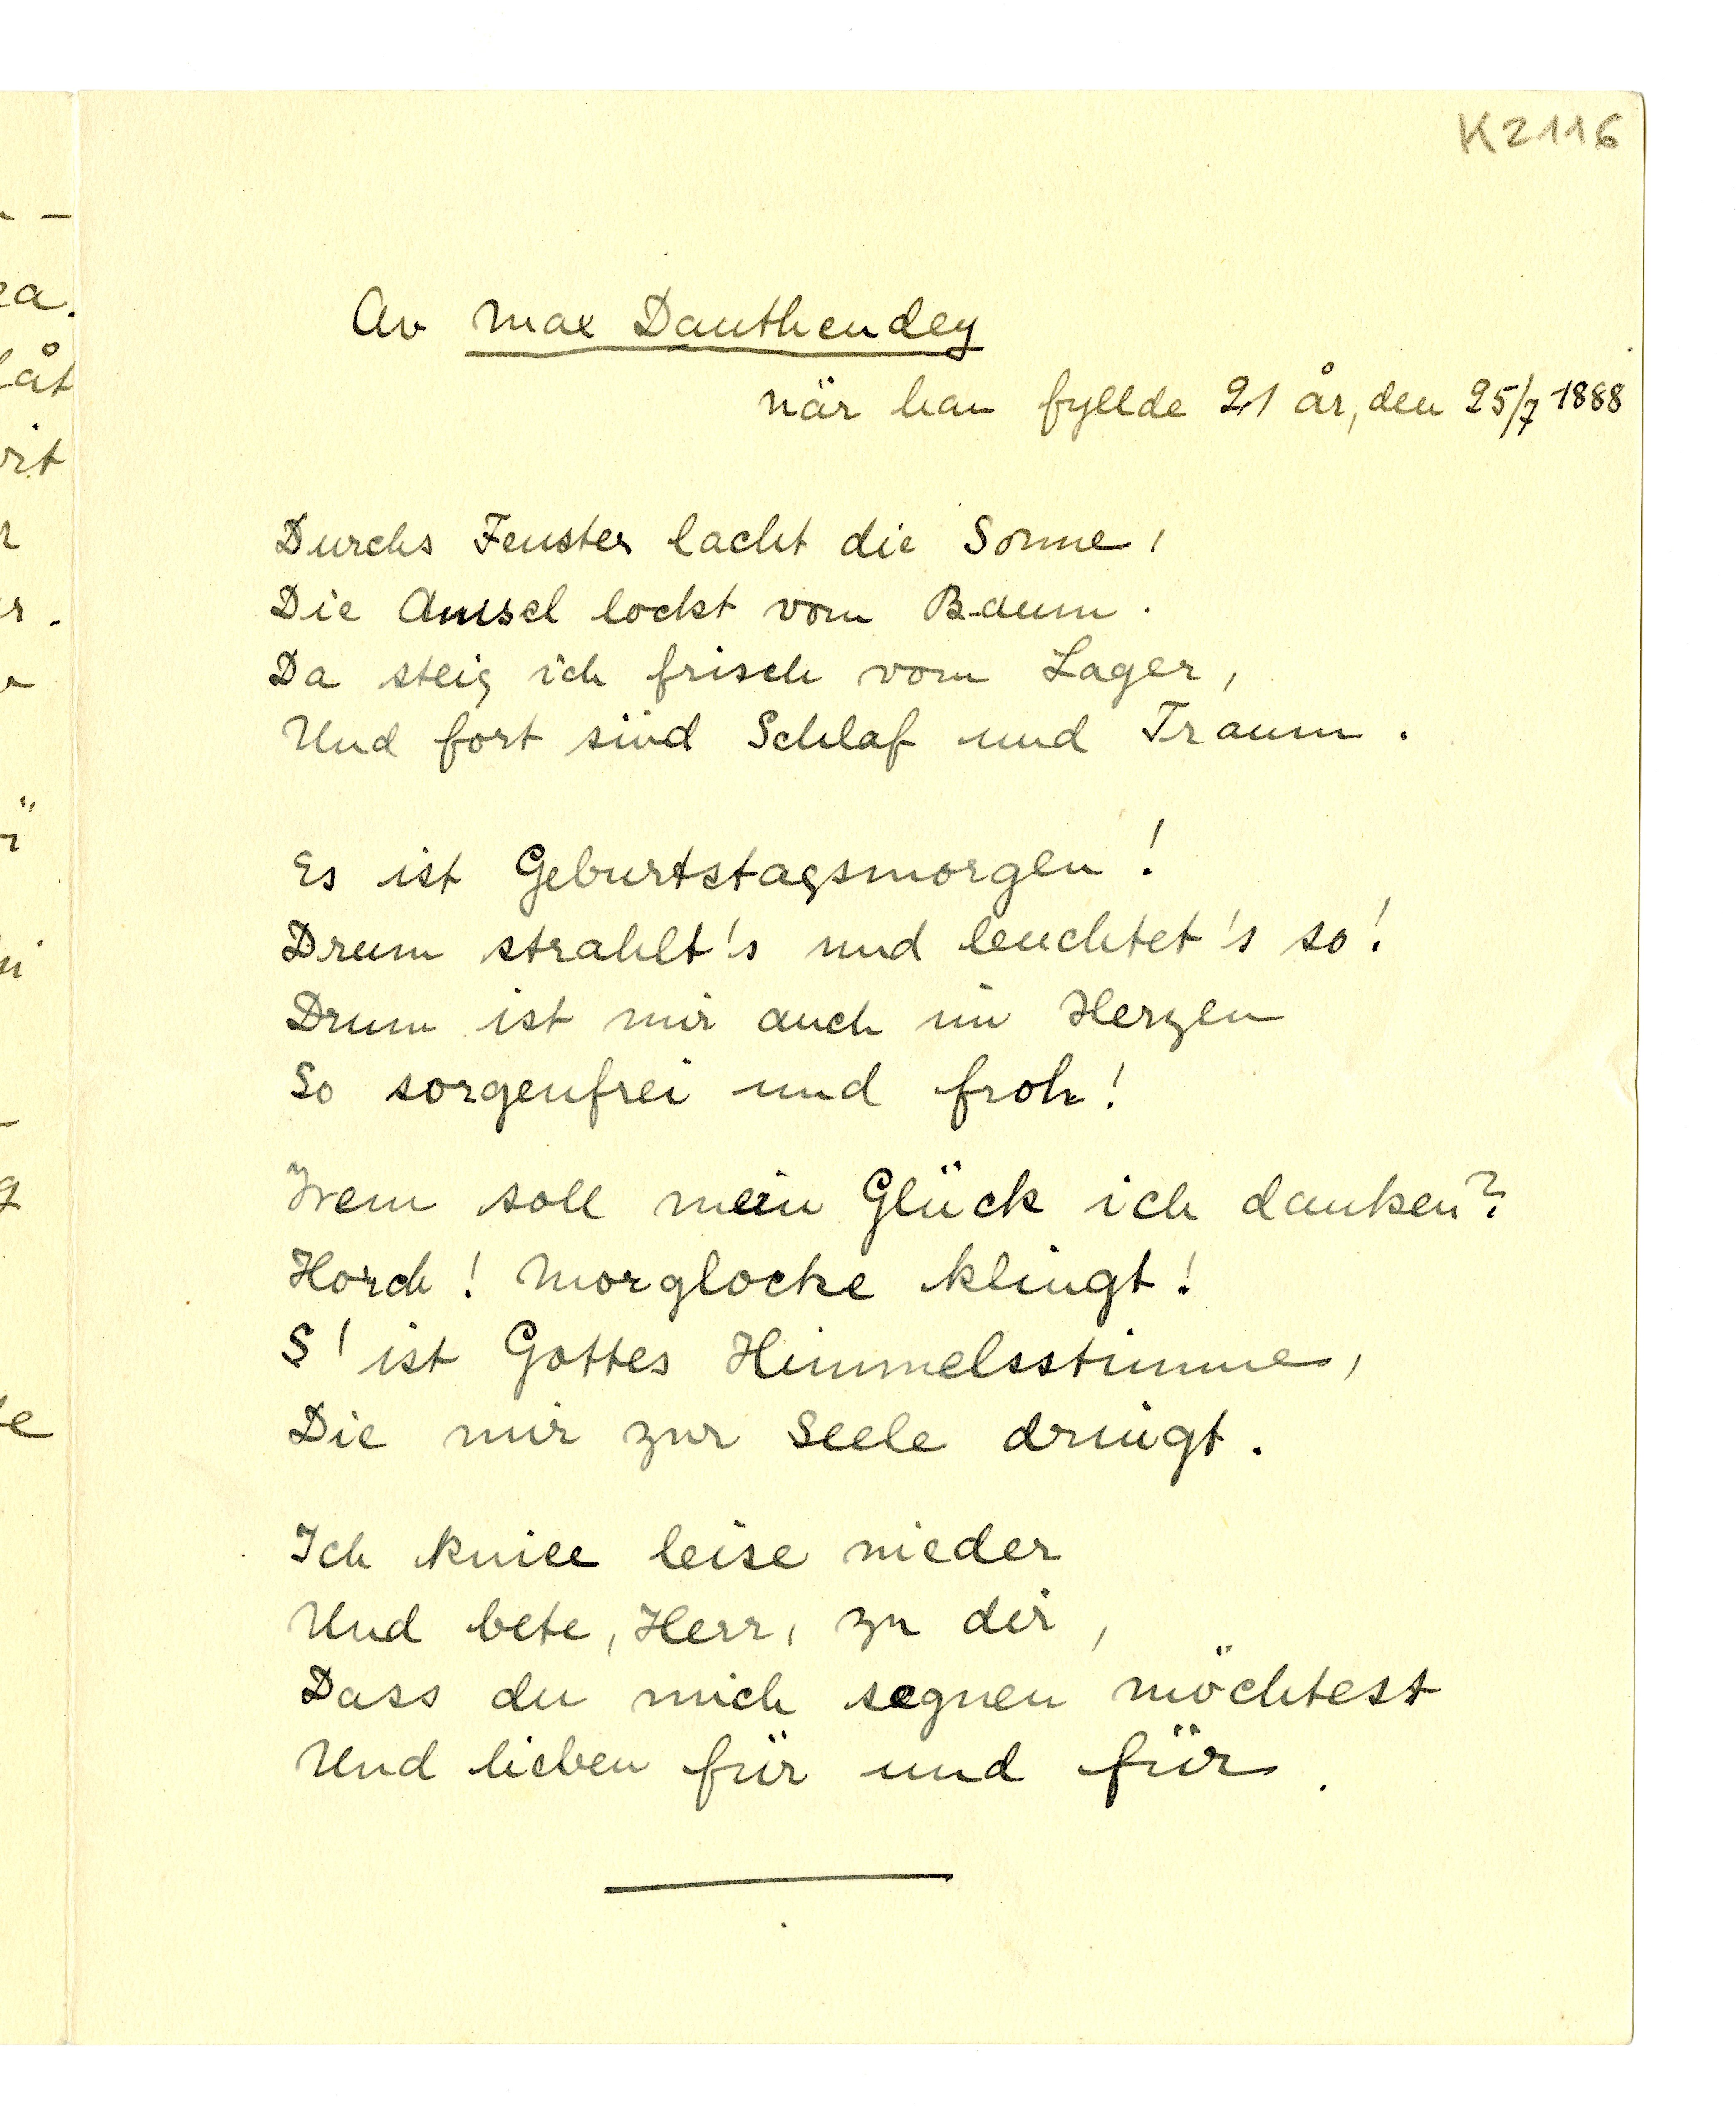 K2116
Av Max Dauthendey
när han fyllde 21 år, den 25/7 1888
Durchs Fenster lacht die Sonne,
Die Amsel lockt vom Baum.
Da steig ich frisch vom Lager,
Und fort sind Schlaf und Traum.
Es ist Geburtstagsmorgen!
Drum strahlt's und leuchtet's so!
Drum ist mir auch im Herzen
So sorgenfrei und froh!
Wem soll mein Glück ich danken?
Horch! Morglocke klingt!
S' ist Gottes Himmelsstimme,
Die mir zur Seele dringt.
Ich kniee leise nieder
Und bete, Herr, zu dir,
Dass du mich segnen möchtest
Und lieben für und für.